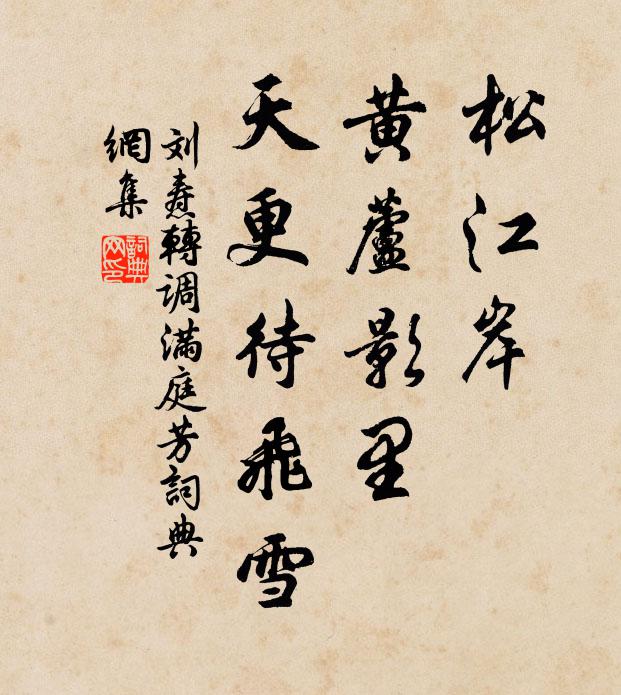 松江岸
黄蘆影里
天更待飛雪
刘焘轉调滿庭芳詞典
網集
詞典
网印